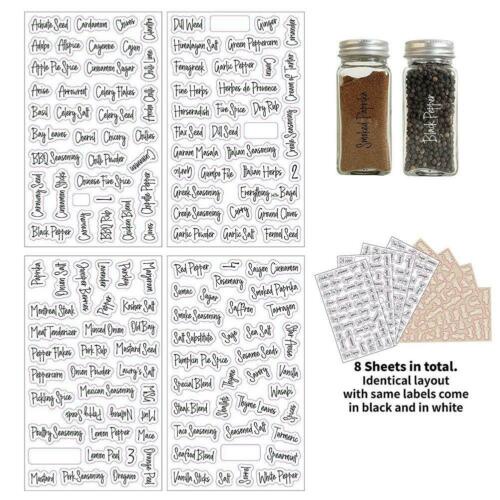 Annate Seed Cardamom Chives
Cilantro
Adobo Allspice Cayenne Cajun
Chili Lime
Apple Pie Spice Cinnamon Sugar
Anise Arrowroot Celery Flakes
Anise Chili
Basil Celery Salt Celery Seed
Bay Leaves Chervil Chicory Chilies
BBQ Seasoning Chili Powder Cinnamon
Caraway Seed Cinnamon Sticks Chinese Five Spice Chipotle Pepper
Caraway BBQ Rub 1 Chicken Blend Cloves
Black Pepper
Dill Weed Ginger Coriander
Himalayan Salt Green Peppercorn
Fenugreek Garlic Pepper Cream of Tartar
Fine Herbs Herbes de Provence
Horseradish Five Spice Dry Rub
Creole Seasoning
Flax Seed Dill Seed
Garam Masala Italian Seasoning
Garlic Gumbo File Italian Herbs 2
Greek Seasoning Everything Bagel
Creole Seasoning Curry Ground Cloves
Garlic Powder Garlic Salt Fennel Seed
Smoked Paprika
Black Pepper
Paprika Onion Salt Parsley Marjoram
Montreal Steak Kosher Salt
Meat Tenderizer Minced Onion Old Bay
Pepper Flakes Pork Rub Mustard Seed
Peppercorn Onion Powder Lawry's Salt
Pickling Spice Mexican Seasoning MSG
Poppy Seed Nutmeg Mint
Poultry Seasoning Lemon Pepper Mace
Lemon Peel 3 Orange Peel
Mustard Pork Seasoning Oregano
Red Pepper 4 Saigon Cinnamon
Rosemary
Sumac Sugar Smoked Paprika
Smoke Seasoning Saffron Tarragon
Salt Substitute Sage Sea Salt
Star Anise
Pumpkin Pie Spice Sesame Seeds
Special Blend Thyme Savory Vanilla
Wasabi
Steak Blend Thyme Leaves Turmeric
Taco Seasoning Seasoned Salt
Seafood Blend Spearmint
Vanilla Sticks Salt Sorrel White Pepper
8 Sheets in total.
Identical layout
with same labels come
in black and in white